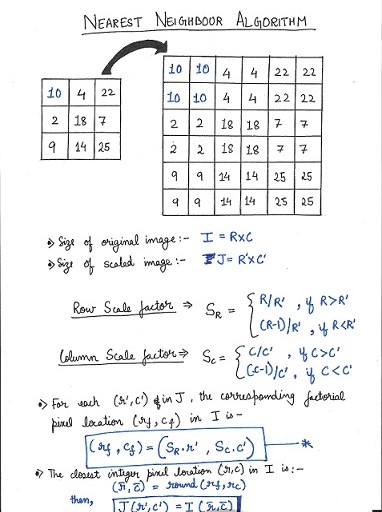 NEAREST NEIGHBOUR ALGORITHM
10 4 22
2 18 7
9 14 25
10 10 4 4 22 22
10 10 4 4 22 22
2 2 18 18 7 7
2 2 18 18 7 7
9 9 14 14 25 25
9 9 14 14 25 25
Size of original image:- I = R×C
Size of scaled image:- J = R'×C'
Row Scale factor ⇒ S_R = { R/R' , if R>R'
(R-1)/R' , if R<R'
Column Scale factor ⇒ S_C = { C/C' , if C>C'
(C-1)/C' , if C<C'
For each (r',c') in J, the corresponding factorial
pixel location (rf, cf) in I is-
(rf, cf) = (S_R.r' , S_C.c') *
The closest integer pixel location (r̄,c̄) in I is:-
(r̄,c̄) = round (rf, rc)
then, J(r',c') = I(r̄,c̄)